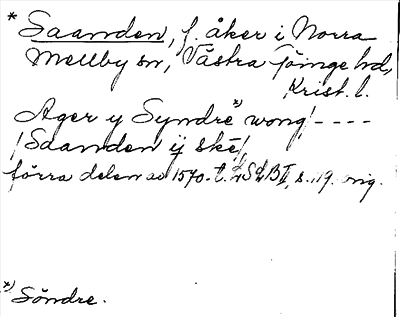 * Saanden, f. åker i Norra
Mellby sn, Västra Göinge hd,
Krist. l.
Ager y Syndre*) wong/----
/Saanden ij ske/,
förra delen av 1570-t. LSLB II, s. 19. orig.
*) Söndre.